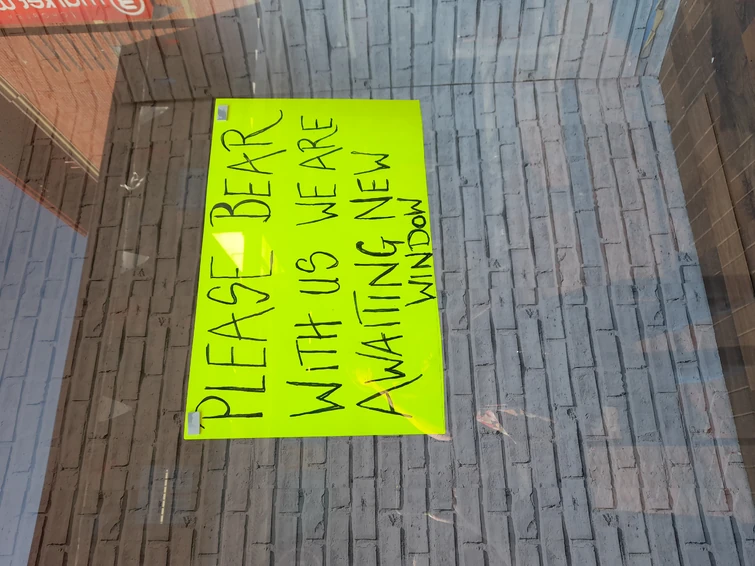 PLEASE BEAR
WITH US WE ARE
AWAITING NEW
WINDOW
market